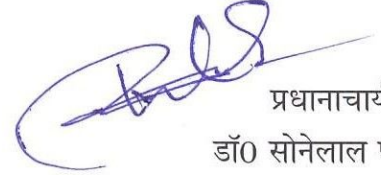 प्रधानाचार्य
डॉ0 सोनेलाल प